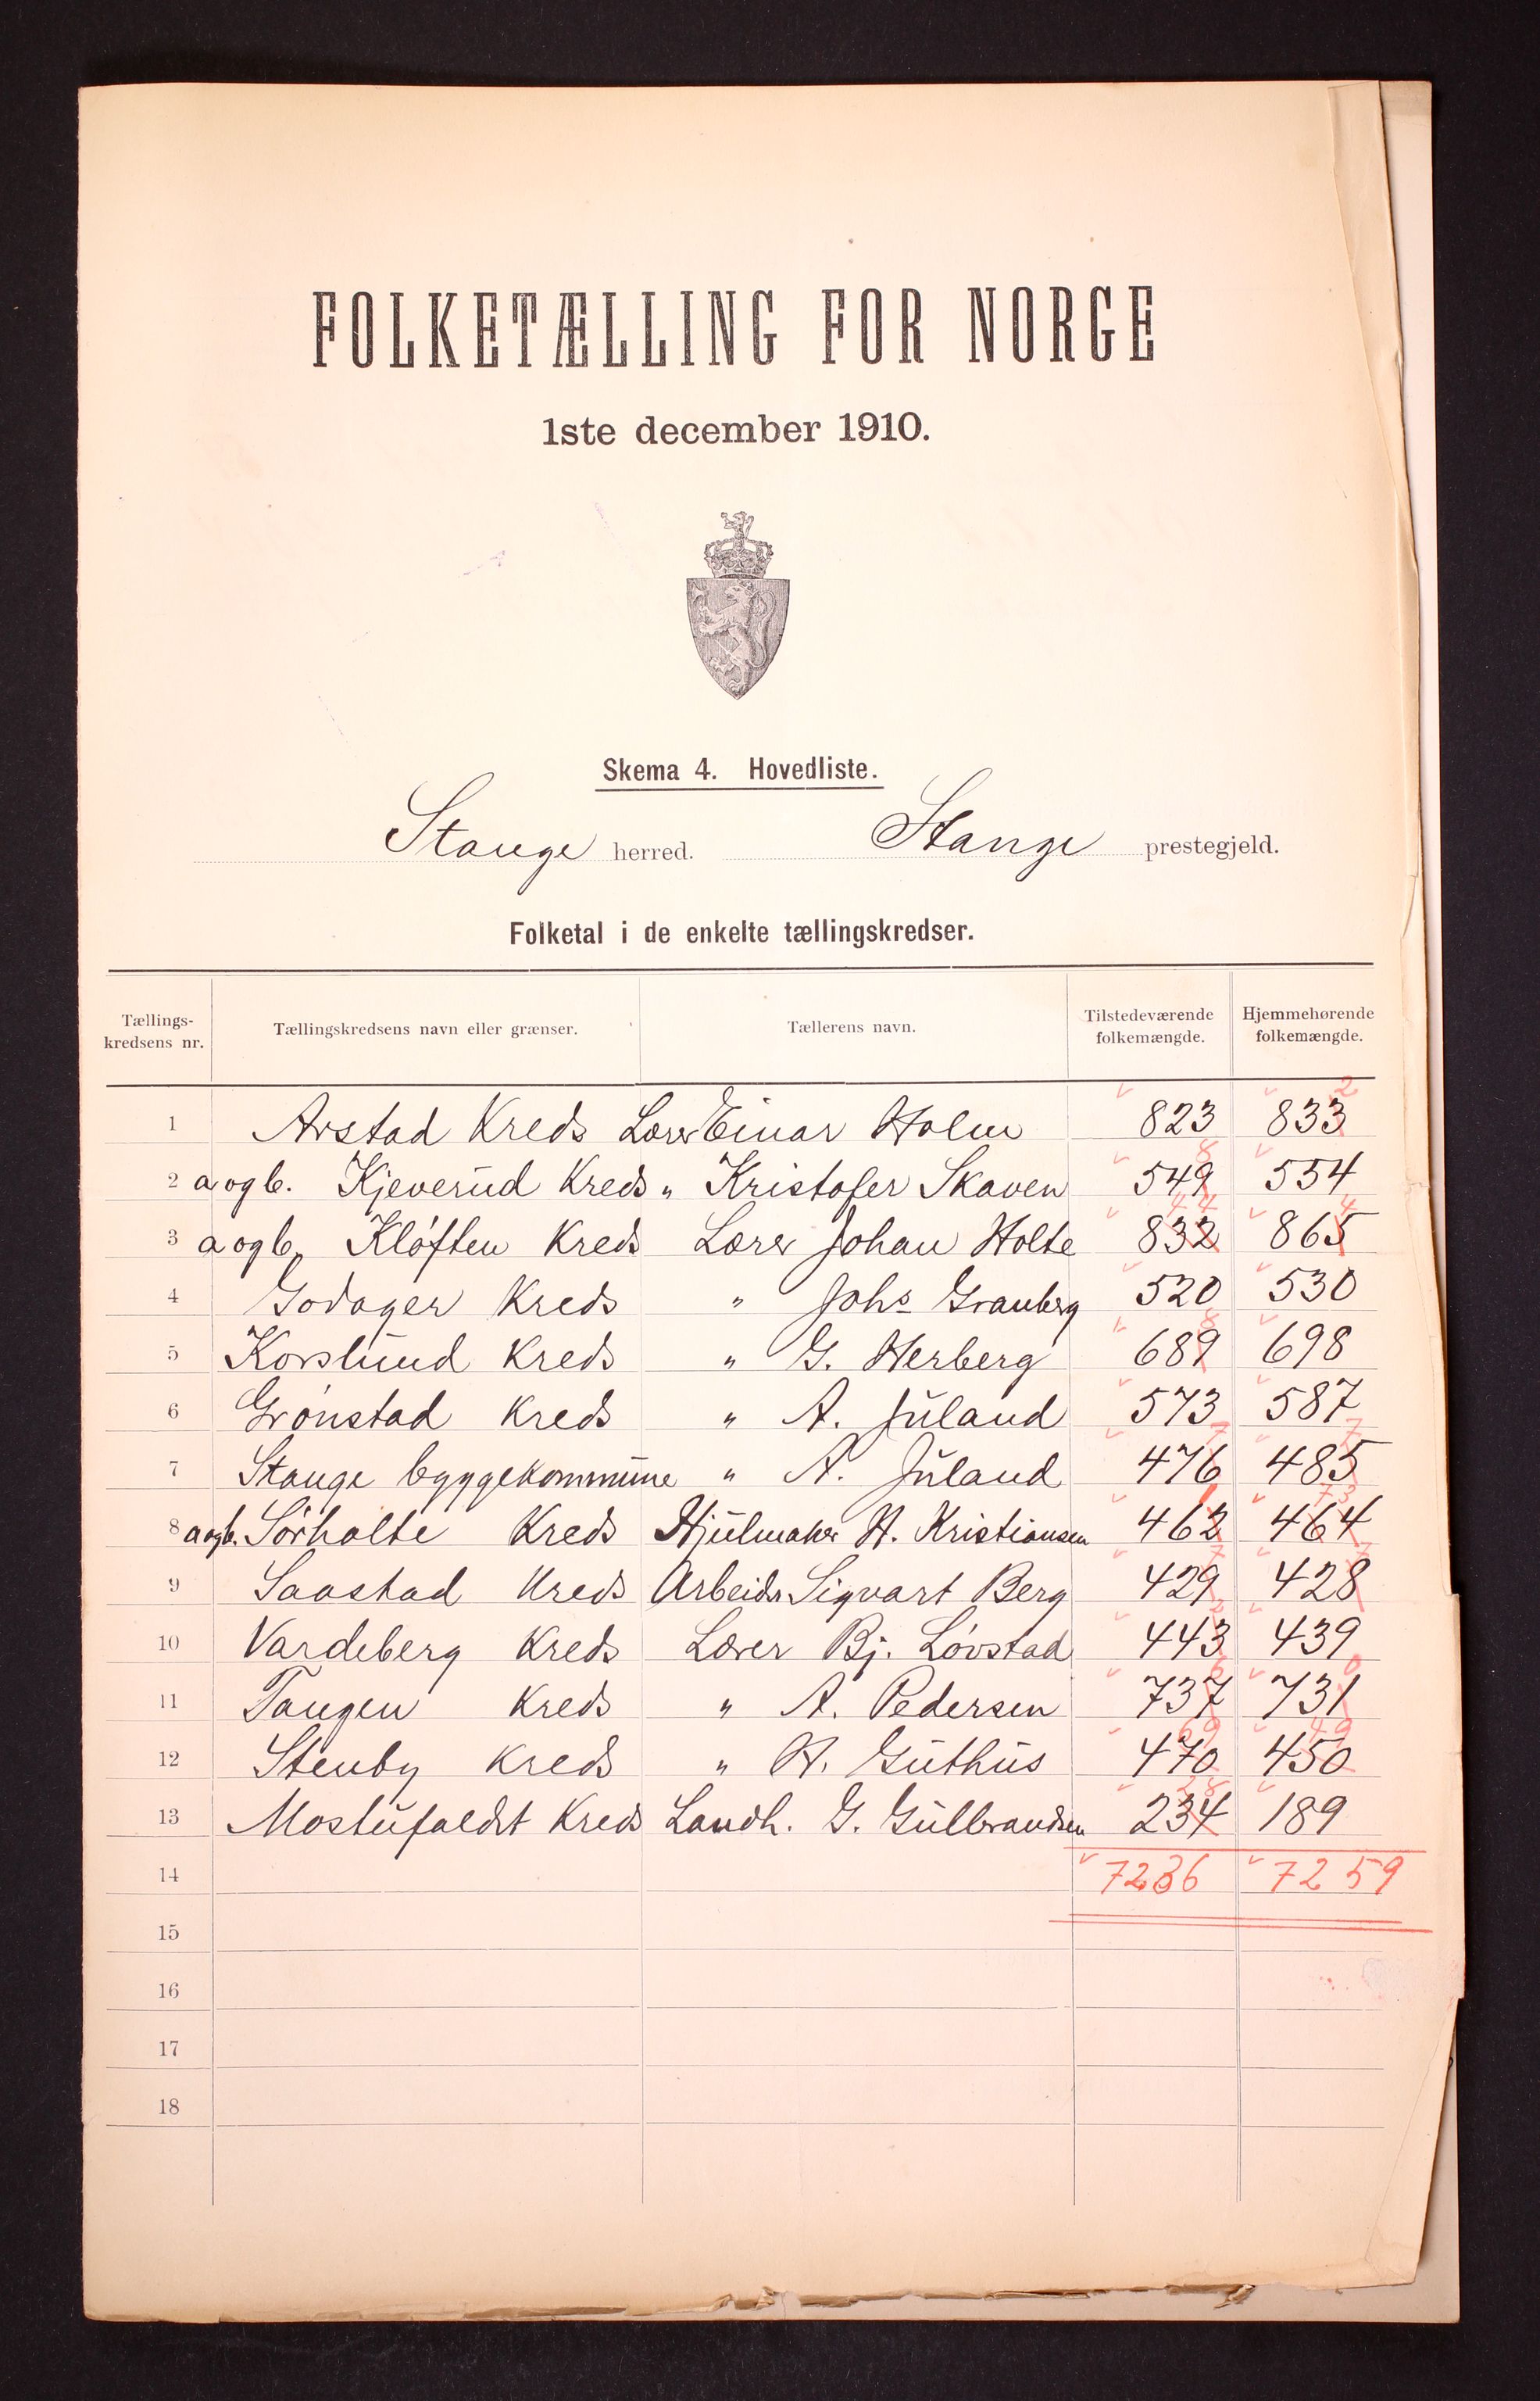 FOLKETÆLLING FOR NORGE
1ste december 1910.
Skema 4. Hovedliste.
Stange herred. Stange prestegjeld.
Folketal i de enkelte tællingskredser.
Tællings-kredsens nr. Tællingskredsens navn eller grænser. Tællerens navn. Tilstedeværende folkemængde. Hjemmehørende folkemængde.
1 Arstad Kreds Lærer Einar Holm 823 833 2
2 a og b. Kjeverud Kreds " Kristofer Skaven 549 8 554
3 a og b. Kløften Kreds Lærer Johan Holte 832 44 865 4
4 Godager Kreds " Johs Granberg 520 530
5 Korslund Kreds " G. Herberg 689 8 698
6 Grønstad Kreds " A. Juland 573 587
7 Stange bygyekommune " A. Juland 476 7 485 7
8 a og b. Sørholte Kreds Hjulmaker H. Kristiansen 462 1 464 73
9 Saastad Kreds Arbeider Sigvart Berg 429 7 428 7
10 Vardeberg Kreds Lærer Bj. Løvstad 443 2 439
11 Tangen Kreds " A. Pedersen 737 6 731 0
12 Stenby Kreds " H. Guthus 470 69 450 49
13 Mostufaldt Kreds Landh. G. Gulbrandsen 234 28 189
14 7236 7259
15
16
17
18